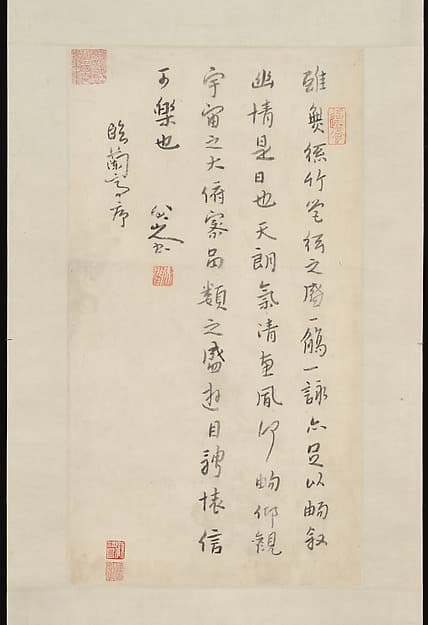 雖無絲竹管弦之盛一觴一詠亦足以暢叙
幽情是日也天朗氣清惠風和暢仰觀
宇宙之大俯察品類之盛遊目騁懷信
可樂也 八大山人
臨蘭亭序